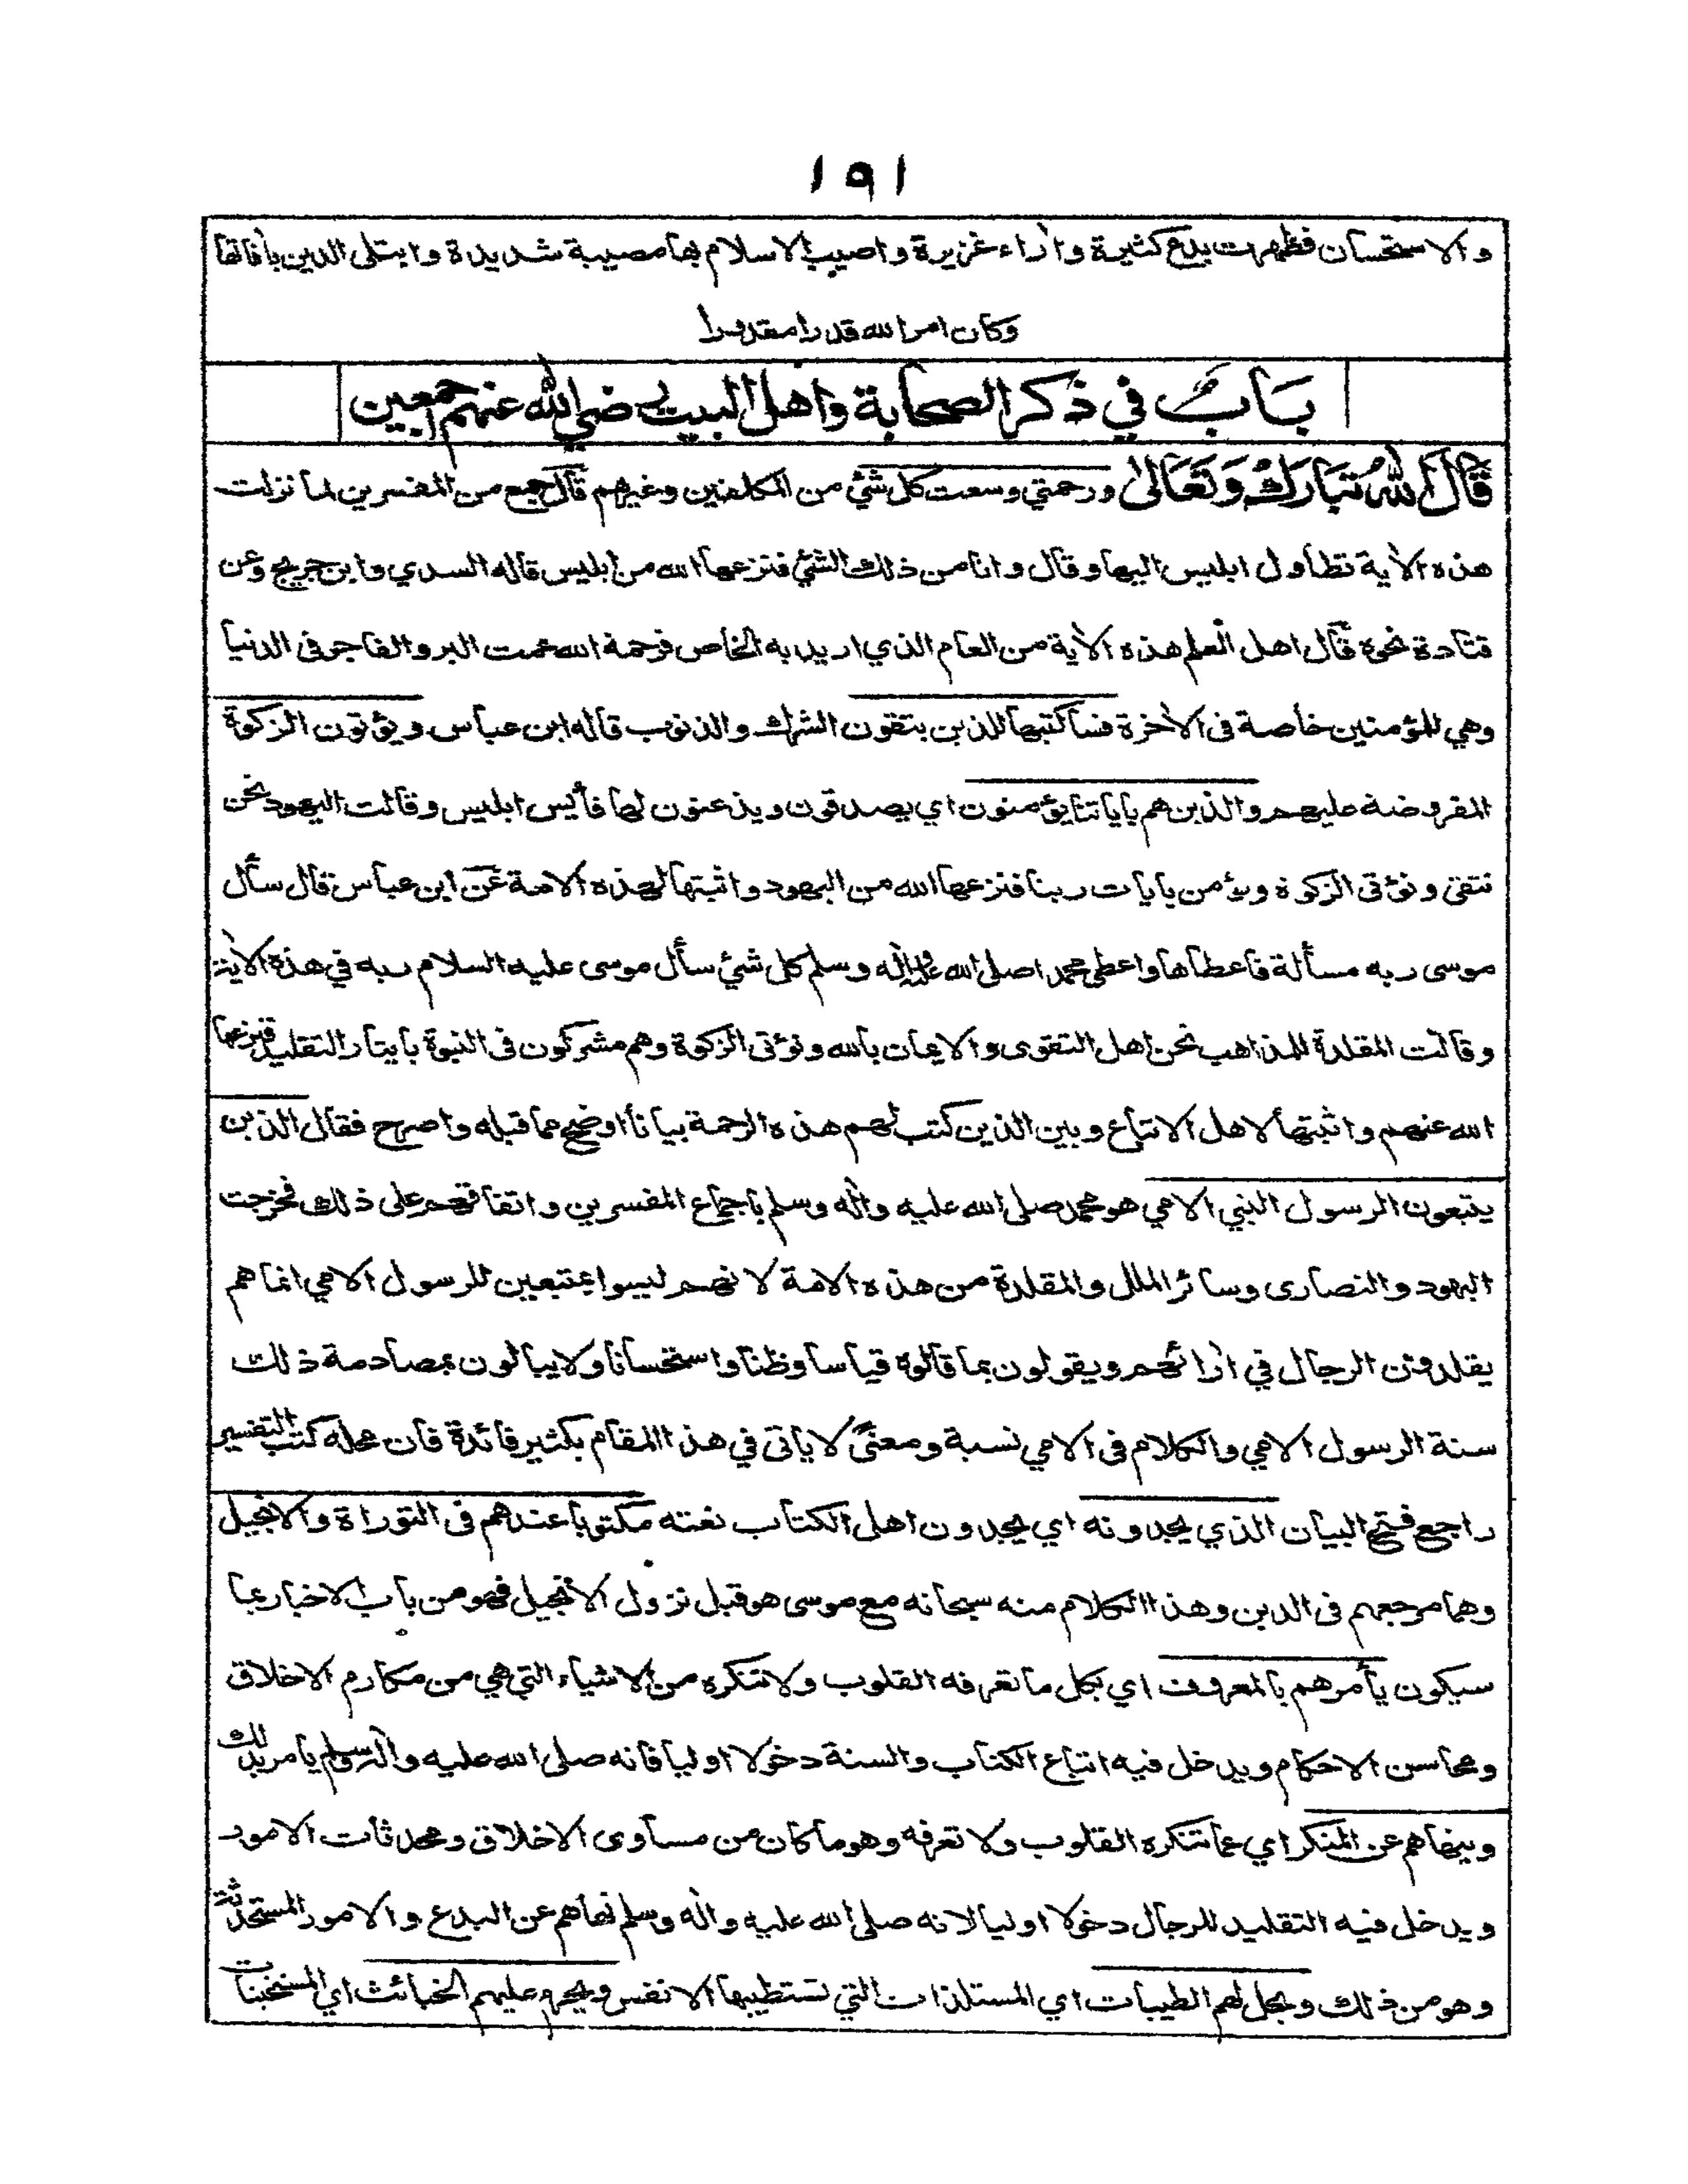 ١٩١
والاستحسان فظهرت بدع كثيرة واٰراء غزيرة واصيب الاسلام بها مصيبة شديدة وابتلى الدين باٰفاتها
وكان امر الله قدرا مقدورا
باب في ذكر الصحابة واهل البيت رضي الله عنهم اجمعين
قال الله تبارك وتعالى ورحمتي وسعت كل شئ من المكلفين وغيرهم قال جمع من المفسرين لما نزلت
هذه الاٰية تطاول ابليس اليها وقال وانا من ذلك الشئ فنزعها الله من ابليس قاله السدي وابن جريج وعن
قتادة نحوه قال اهل العلم هذه الاٰية من العام الذي اريد به الخاص فرحمة الله عمت البر والفاجر فى الدنيا
وهي للمؤمنين خاصة فى الاٰخرة فساكتبها للذين يتقون الشرك والذنوب قاله ابن عباس ويؤتون الزكوة
المفروضة عليهم والذين هم باياتنا يؤمنون اي يصدقون ويذعنون لها فأيس ابليس وقالت اليهود نحن
نتقى ونؤتى الزكوة ونؤمن بايات ربنا فنزعها الله من اليهود واثبتها لهذه الامة عن ابن عباس قال سأل
موسى ربه مسألة فاعطاها واعطى محمدا صلى الله عليه واٰله وسلم كل شئ سأل موسى عليه السلام ربه في هذه الاٰية
وقالت المقلدة للمذاهب نحن اهل التقوى والايمان بالله ونؤتى الزكوة وهم مشركون فى النبوة بايثار التقليد فنزعها
الله عنهم واثبتها لاهل الاتباع وبين الذين كتب لهم هذه الرحمة بيانا اوضح مما قبله واصرح فقال الذين
يتبعون الرسول النبي الامي هو محمد صلى الله عليه واٰله وسلم باجماع المفسرين واتفاقهم على ذلك فخرجت
اليهود والنصارى وسائر الملل والمقلدة من هذه الامة لانهم ليسوا بمتبعين للرسول الامي انما هم
يقلدون الرجال في اٰرائهم ويقولون بما قالوه قياسا وظنا واستحسانا ولا يبالون بمصادمة ذلك
سنة الرسول الامي والكلام فى الامي نسبة ومعنًى لا ياتى في هذا المقام بكثير فائدة فان محله كتب التفسير
راجع فتح البيان الذي يجدونه اي يجدون اهل الكتاب نعته مكتوبا عندهم فى التوراة والانجيل
وهما مرجعهم فى الدين وهذا الكلام منه سبحانه مع موسى هو قبل نزول الانجيل فهو من باب الاخبار بما
سيكون يأمرهم بالمعروف اي بكل ما تعرفه القلوب ولا تنكره من الاشياء التي هي من مكارم الاخلاق
ومحاسن الاحكام ويدخل فيه اتباع الكتاب والسنة دخولا اوليا فانه صلى الله عليه واٰله وسلم يامر بذلك
وينهاهم عن المنكر اي عما تنكره القلوب ولا تعرفه وهو ما كان من مساوى الاخلاق ومحدثات الامور
ويدخل فيه التقليد للرجال دخولا اوليا لانه صلى الله عليه واٰله وسلم نهاهم عن البدع والامور المستحدثة
وهو من ذلك ويحل لهم الطيبات اي المستلذات التي تستطيبها الانفس ويحرم عليهم الخبائث اي المستخبثات